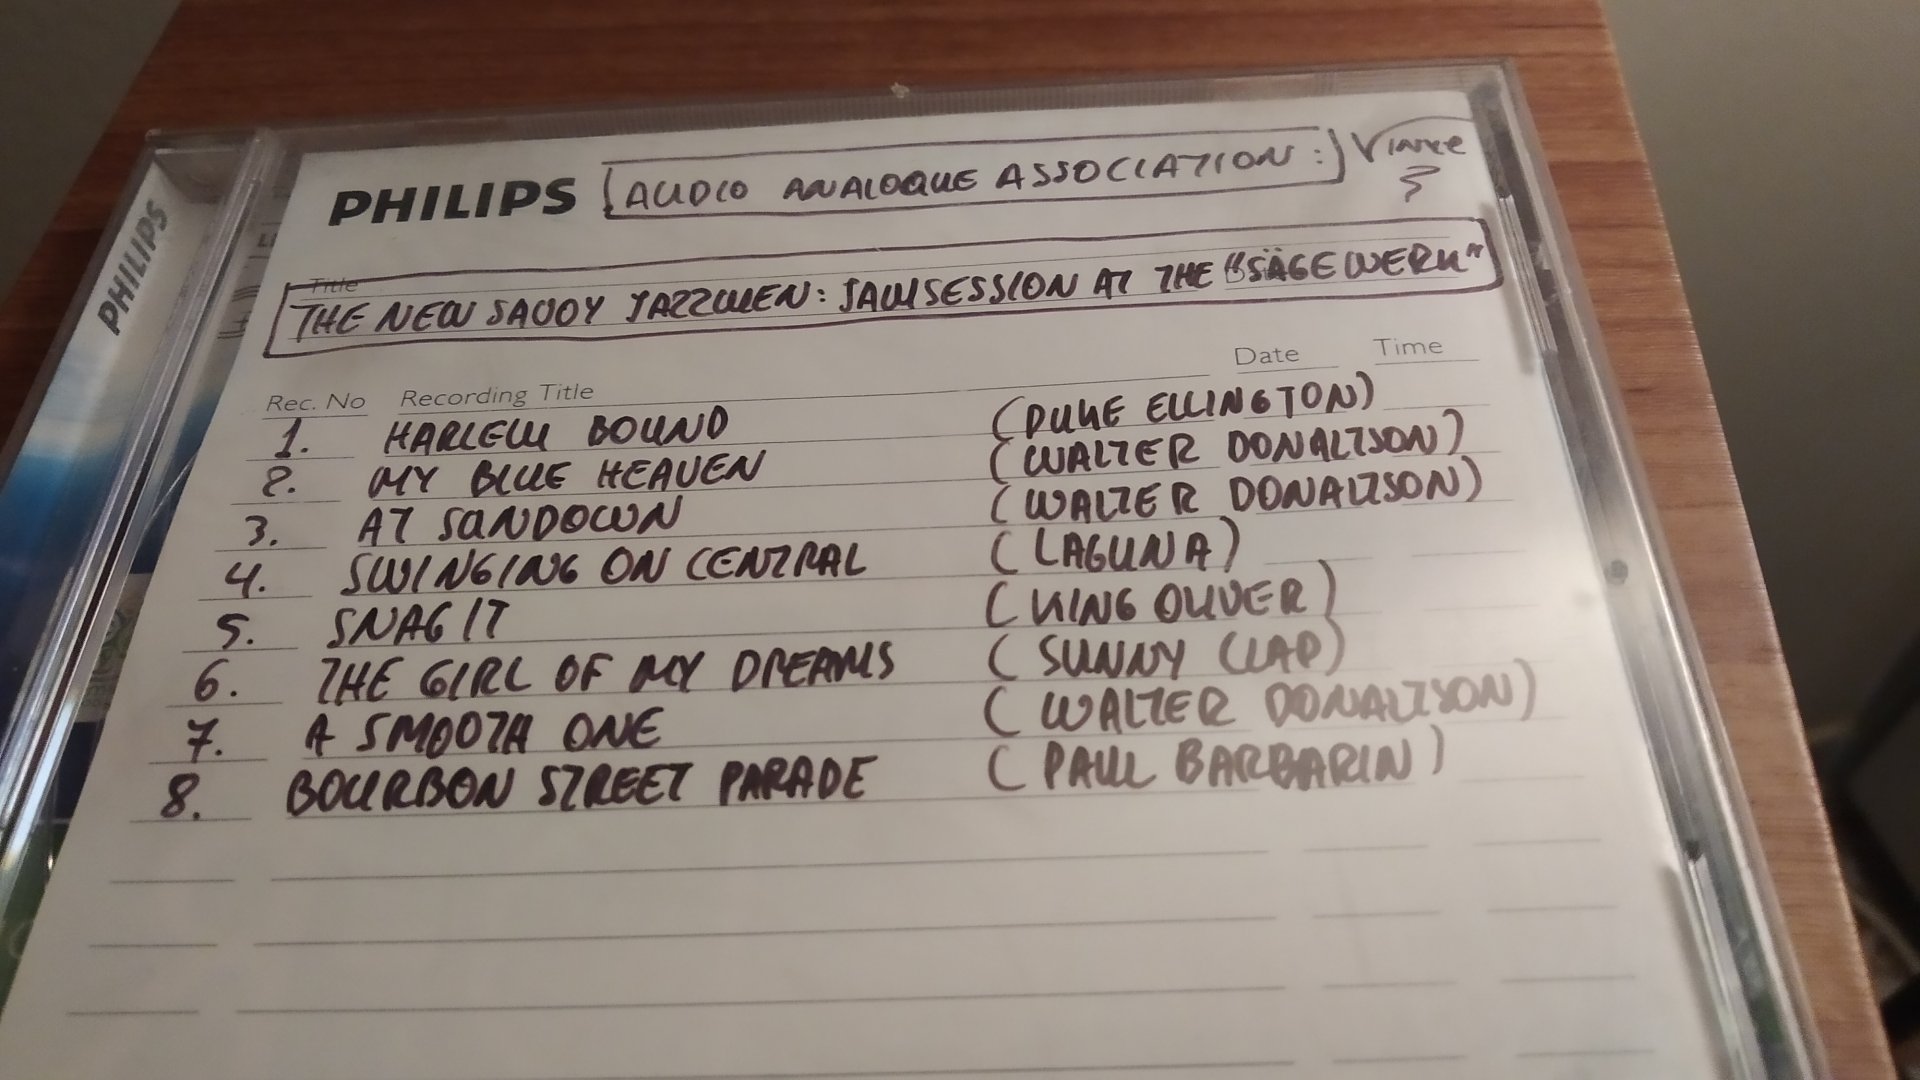 PHILIPS
PHILIPS AUDIO ANALOGUE ASSOCIATION:
Title
THE NEW SAVOY JAZZMEN: JAMSESSION AT THE "SÄGEWERK"
Rec. No Recording Title Date Time
1. HARLEM BOUND (DUKE ELLINGTON)
2. MY BLUE HEAVEN (WALTER DONALTSON)
3. AT SANDOWN (WALTER DONALTSON)
4. SWINGING ON CENTRAL (LAGUNA)
5. SNAG IT (KING OLIVER)
6. THE GIRL OF MY DREAMS (SUNNY CLAP)
7. A SMOOTH ONE (WALTER DONALTSON)
8. BOURBON STREET PARADE (PAUL BARBARIN)